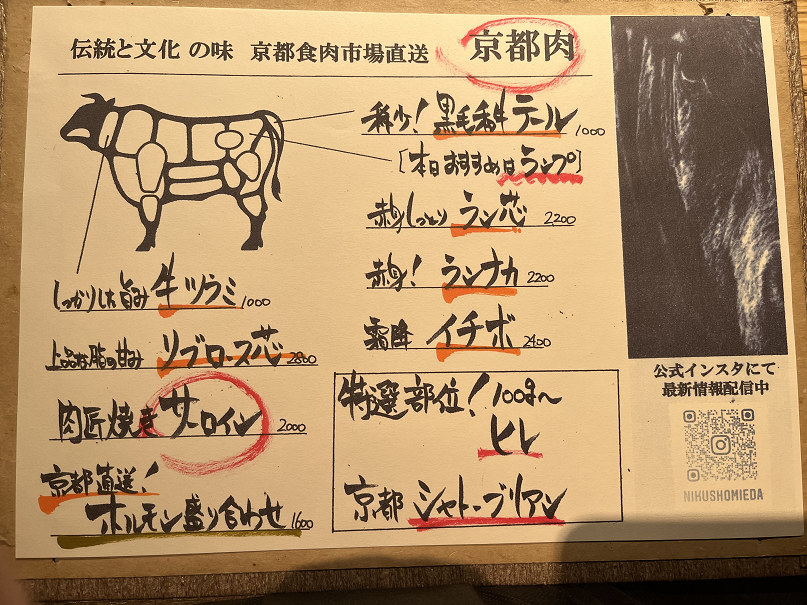 伝統と文化 の味 京都食肉市場直送 京都肉
稀少! 黒毛和牛テール 1000
[本日おすすめはランプ]
赤身しっとり ラン芯 2200
赤身! ランナカ 2200
霜降 イチボ 2400
しっかりした旨み 牛ツラミ 1000
上品な脂の甘み リブロース芯 2800
肉匠焼き サーロイン 2000
京都直送!
ホルモン盛り合わせ 1600
特選部位! 100g〜
ヒレ
京都 シャトーブリアン
公式インスタにて
最新情報配信中
NIKUSHOMIEDA